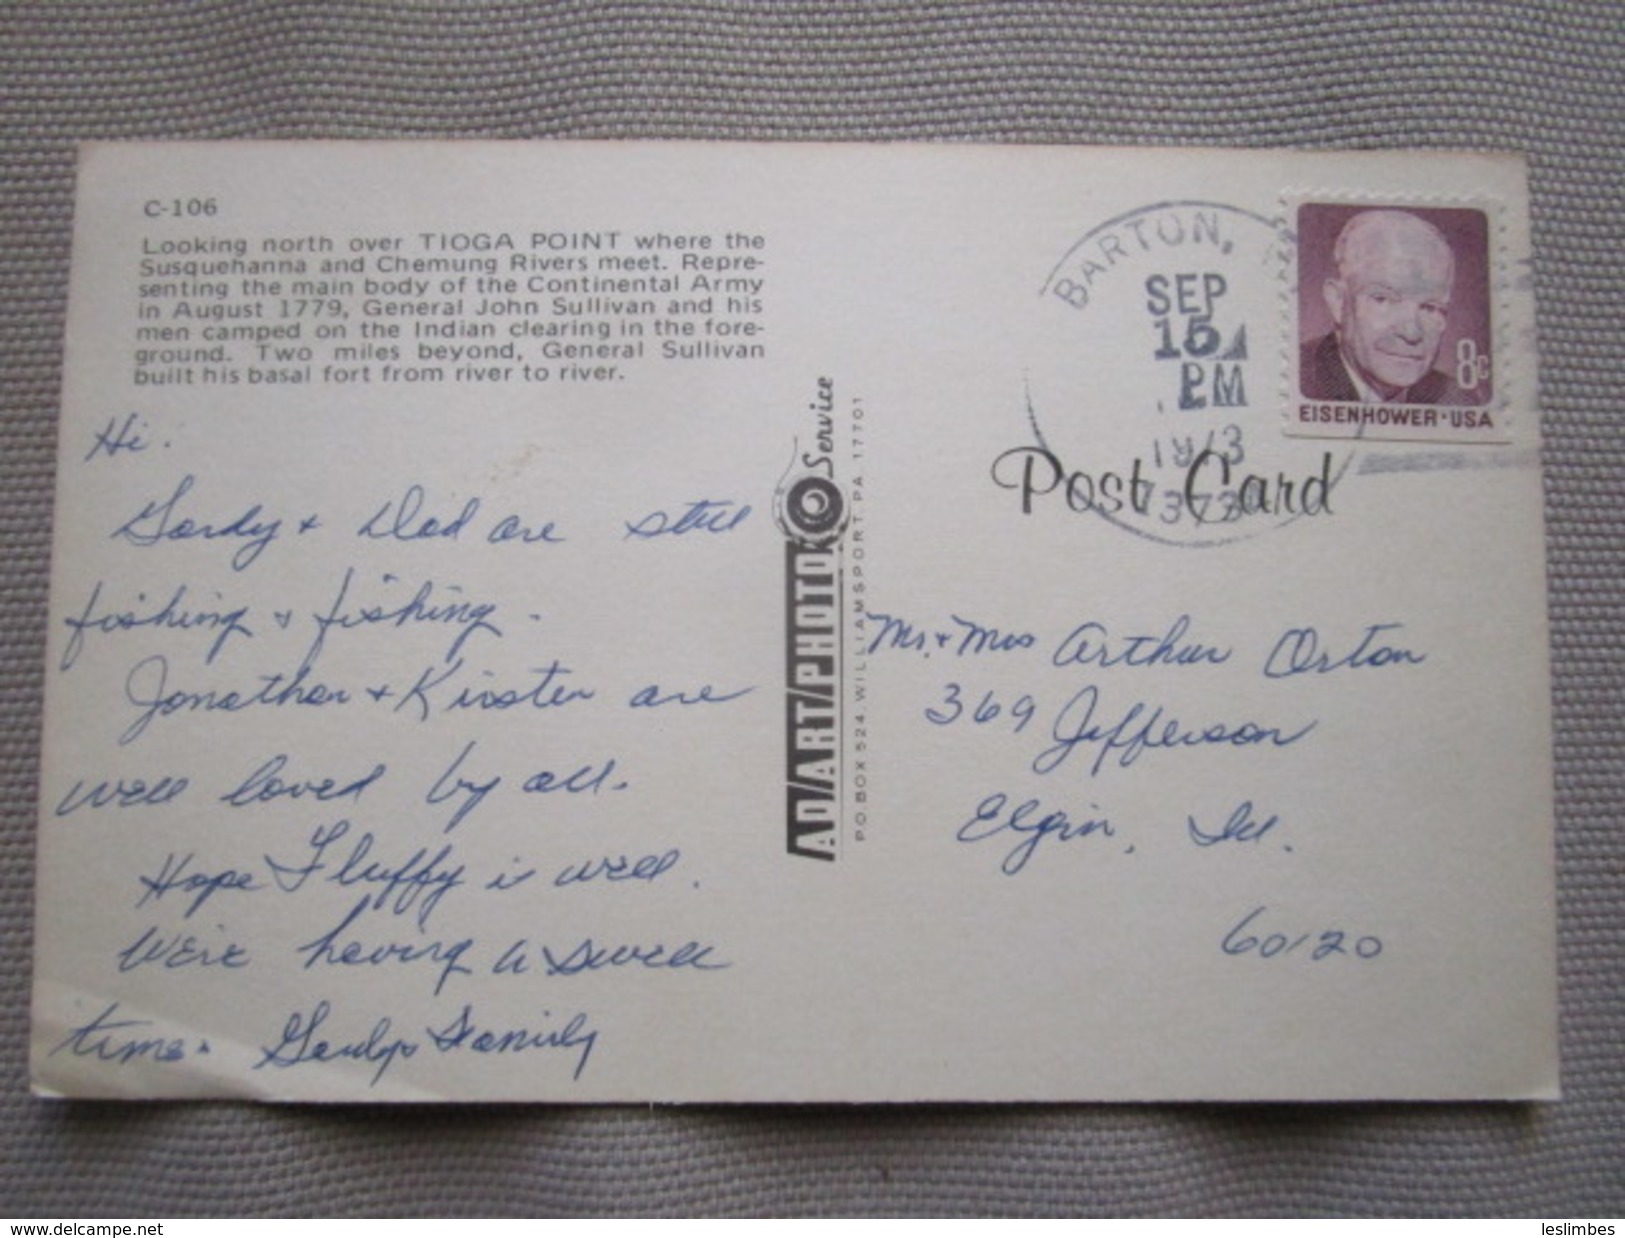 C-106
Looking north over TIOGA POINT where the
Susquehanna and Chemung Rivers meet. Repre-
senting the main body of the Continental Army
in August 1779, General John Sullivan and his
men camped on the Indian clearing in the fore-
ground. Two miles beyond, General Sullivan
built his basal fort from river to river.
Hi.
Gordy + Dad are still
fishing + fishing.
Jonathan + Kirsten are
well loved by all.
Hope Fluffy is well.
We're having a swell
time. Family
AD/ART/PHOTO Service
P.O. BOX 524, WILLIAMSPORT, PA. 17701
BARTON,
SEP
15
PM
1973
EISENHOWER · USA
8c
Post Card
Mr. + Mrs Arthur Orton
369 Jefferson
Elgin, Ill.
60120
www.delcampe.net
leslimbes